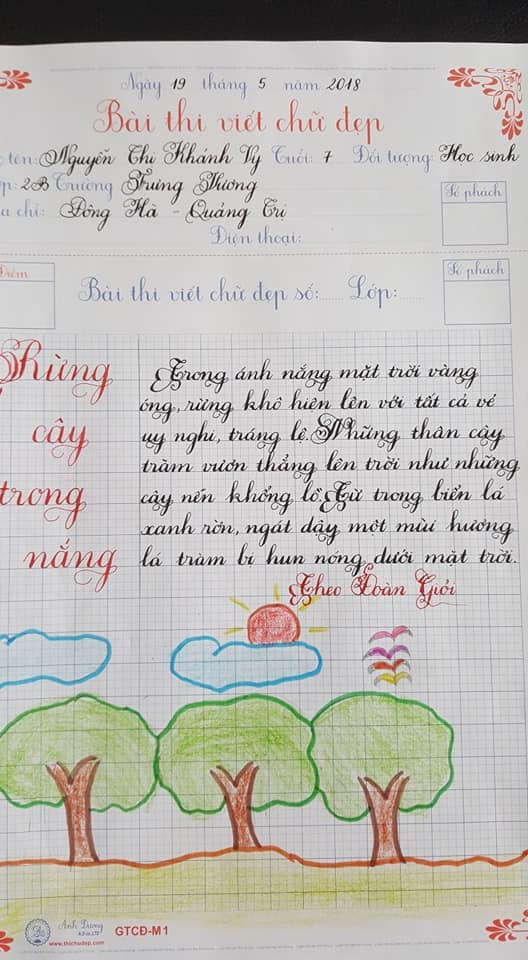 Ngày 19 tháng 5 năm 2018
Bài thi viết chữ đẹp
tên: Nguyễn Thị Khánh Vy Tuổi: 7 Đối tượng: Học sinh
p: 2B Trường Trưng Vương
a chỉ: Đông Hà - Quảng Trị
Số phách
Điện thoại:
Điểm
Bài thi viết chữ đẹp số: Lớp:
Số phách
Rừng
cây
trong
nắng
Trong ánh nắng mặt trời vàng
óng, rừng khô hiện lên với tất cả vẻ
uy nghi, tráng lệ. Những thân cây
tràm vươn thẳng lên trời như những
cây nến khổng lồ. Từ trong biển lá
xanh rờn, ngát dậy một mùi hương
lá tràm bị hun nóng dưới mặt trời.
Theo Đoàn Giỏi
Ánh Dương
GTCĐ-M1
www.thichudep.com